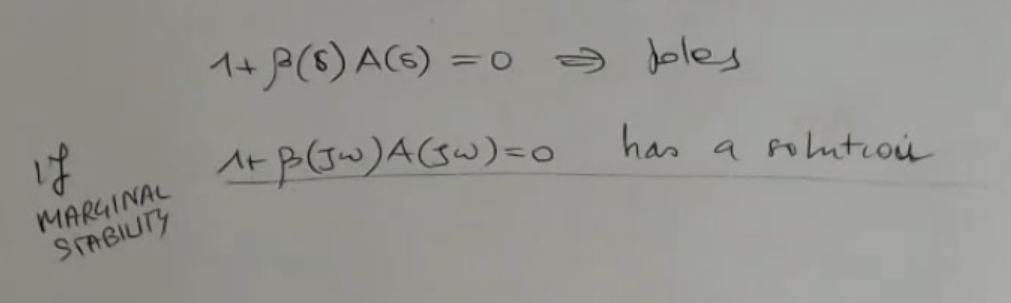 1+ β(s) A(s) = 0 ⇒ poles
If 1+ β(jω) A(jω) = 0 has a solution
MARGINAL
STABILITY